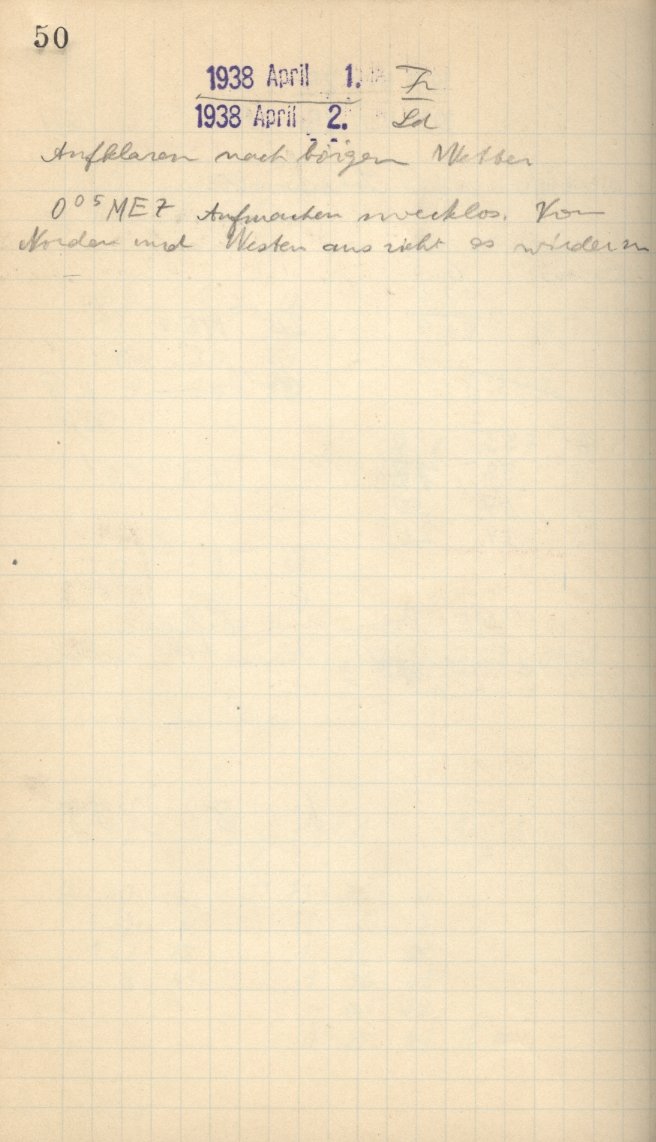 50
1938 April 1. Fr
1938 April 2. Sd
Aufklaren nach böigem Wetter
0⁰⁵ MEZ Aufmachen zwecklos. Von
Norden und Westen aus zieht es wieder zu